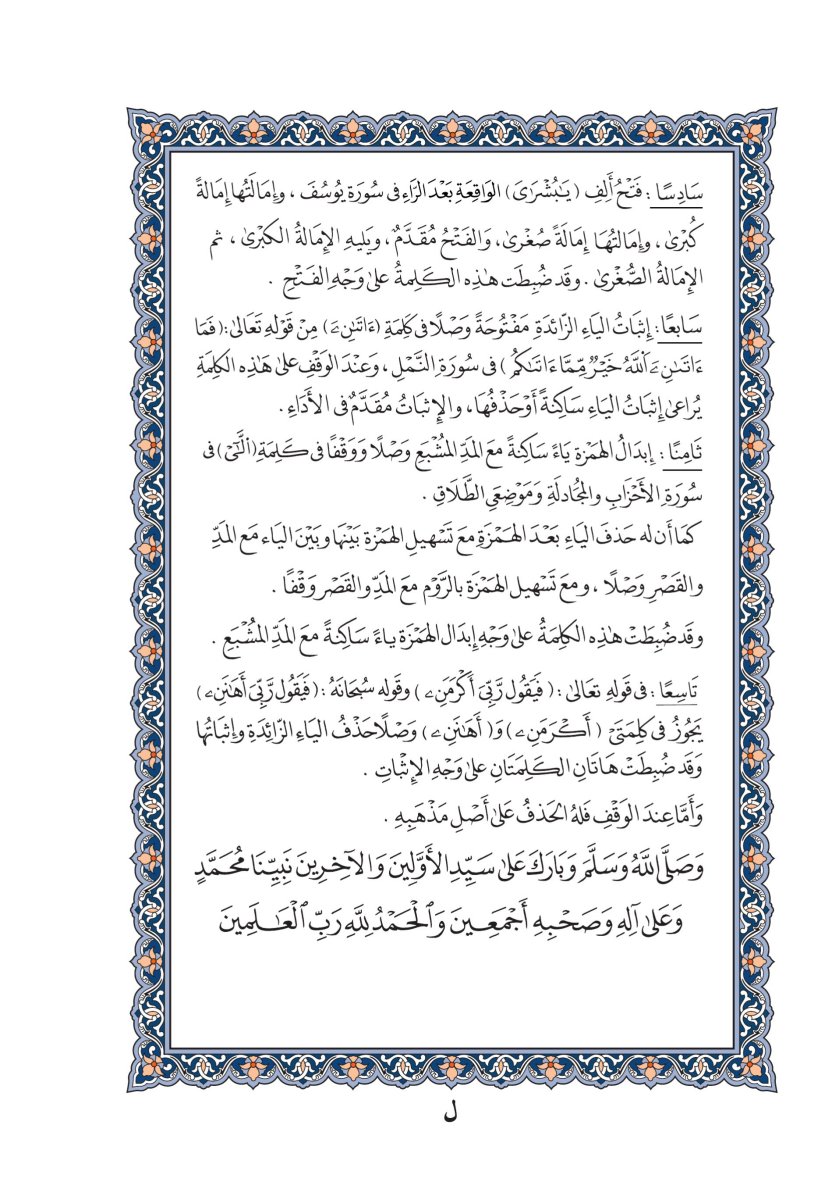 سَادِسًا : فَتْحُ أَلِفِ ( يَـٰبُشْرَىَ ) الوَاقِعَةِ بَعْدَ الرَّاءِ فى سُورَةِ يُوسُفَ ، وإِمَالَتُها إِمَالةً
كُبْرىٰ ، وإِمَالتُهَا إِمَالَةً صُغْرىٰ، وَالفَتْحُ مُقَدَّمٌ ، ويَليهِ الإِمَالةُ الكبْرىٰ ، ثم
الإِمَالةُ الصُّغْرىٰ . وقَد ضُبِطَت هٰذِه الكَلِمةُ علىٰ وَجْهِ الفَتْحِ .
سَابعًا: إِثبَاتُ اليَاءِ الزّائدَةِ مَفْتُوحَةً وَصْلًا فى كَلِمَةِ (ءَاتَىٰنِۦَ) مِنْ قَوْلهِ تَعَالىٰ:(فَمَا
ءَاتَىٰنِۦَ ٱللَّهُ خَيْرٌ مِّمَّا ءَاتَىٰكُم ) فى سُورَةِ النَّمْلِ ، وَعِنْدَ الوَقْفِ علىٰ هَٰذِهِ الكَلِمَةِ
يُراعىٰ إِثبَاتُ اليَاءِ سَاكِنةً أَوْ حَذْفُهَا، والإِثبَاتُ مُقَدَّمٌ فى الأَدَاءِ .
ثَامِنًا : إِبدَالُ الهَمْزةِ يَاءً سَاكِنةً معَ المَدِّ المُشْبَعِ وَصْلًا وَوَقْفًا فى كَلِمَةِ(ٱلَّـٰٓئِ) فى
سُورَةِ الأَحْزَابِ والمُجَادلَةِ وَمَوْضِعَىِ الطَّلَاقِ .
كمَا أَن له حَذفَ اليَاءِ بَعْدَ الهَمْزَةِ معَ تَسْهيلِ الهَمْزة بَيْنَهَا وبَيْنَ اليَاء مَع المَدِّ
والقَصْرِ وَصْلًا ، ومعَ تَسْهيل الهَمْزَة بالرَّوْم معَ المَدِّ والقَصْر وَقْفًا .
وقَد ضُبِطَتْ هٰذِه الكَلِمَةُ علىٰ وَجْهِ إِبدَال الهَمْزَة ياءً سَاكِنةً معَ المَدِّ المُشْبَعِ .
تَاسِعًا : فى قَولهِ تَعَالىٰ : ( فَيَقُول رَّبِّىَ أَكْرَمَنِۦ ) وقَوله سُبحَانَهُ : ( فَيَقُول رَّبِّىَ أَهَـٰنَنِۦ )
يَجُوزُ فى كلِمَتَىْ ( أَكْرَمَنِۦ ) وَ( أَهَـٰنَنِۦ ) وَصْلًا حَذْفُ اليَاءِ الزَّائِدَةِ وإِثبَاتُها
وَقَد ضُبِطَتْ هَاتَانِ الكَلِمَتَانِ علىٰ وَجْهِ الإِثبَاتِ .
وَأَمَّا عِندَ الوَقْفِ فَلهُ الحَذفُ عَلىٰ أَصْلِ مَذْهَبِهِ .
وَصَلَّى اللَّهُ وَسَلَّمَ وَبَارَكَ عَلىٰ سَيِّدِ الأَوَّلِينَ وَالآخِرِينَ نَبِيِّنَا مُحَمَّدٍ
وَعَلىٰ آلِهِ وَصَحْبِهِ أَجْمَعِينَ وَٱلْحَمْدُ لِلَّهِ رَبِّ ٱلْعَـٰلَمِينَ
ل